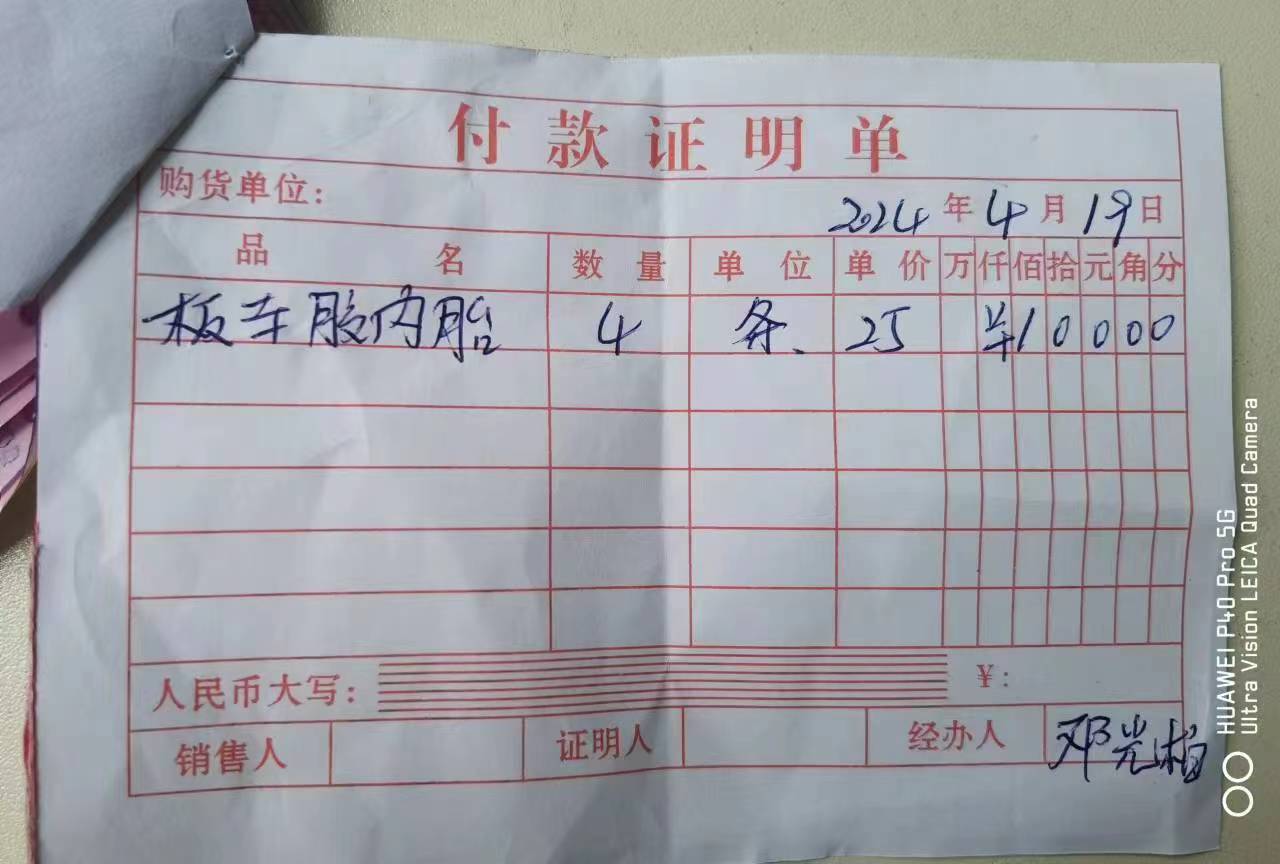 付款证明单
购货单位:
2024年4月19日
品名 数量 单位 单价 万仟佰拾元角分
板车胶内胎 4 条、 25 ¥10000
人民币大写: ¥:
销售人 证明人 经办人 邓光柏
HUAWEI P40 Pro 5G
Ultra Vision LEICA Quad Camera